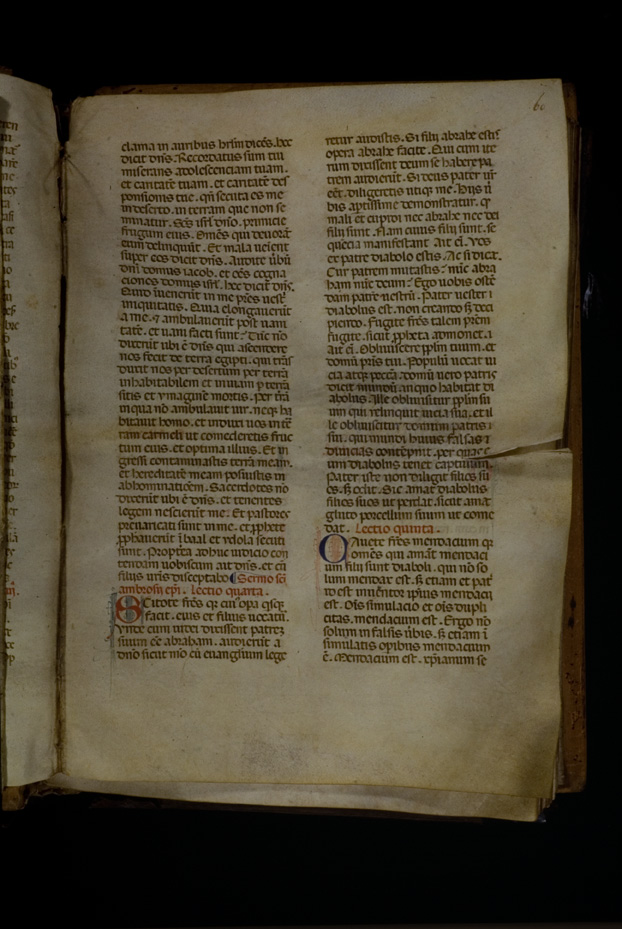 60
clama in auribus hrłm dicēs. hec
dicit dn̄s. Recordatus sum tui
miserans adolescenciam tuam.
et caritatē tuam. et caritatē des
ponsionis tue. qn̄ secuta es me
in deserto. in terram que non se
minatur. Scs̄ isrł dn̄o. primicie
frugum eius. Om̄es qui deuorāt
eum delinquūt. Et mala ueient
super eos dicit dn̄s. Audite ūbū
dn̄i domus iacob. et oēs cogna
ciones domus isrł. hec dicit dn̄s.
Quid īuenerūt in me pr̄es ur̄i
iniquitatis. Quia elongauerūt
a me. ⁊ ambulauerūt post uani
tatē. et uani facti sunt. Et nō
dixerūt ubi ē dn̄s qui ascendere
nos fecit de terra egipti. qui trās
duxit nos per desertum per terrā
inhabitabilem et inuiam p terrā
sitis et ymaginē mortis. per tr̄ā
in qua nō ambulauit uir. neqꝫ ha
bitauit homo. et induxi uos in tr̄
ram carmeli ut comederetis fruc
tum eius. et optima illius. Et in
gressi contaminastis terrā meam.
et hereditatē meam posuistis in
abhominatiōem. Sacerdotes nō
dixerūt ubi ē dn̄s. et tenentes
legem nescierūt me. Et pastores
preuaricati sunt in me. et ꝓphete
ꝓphauerūt ī baal et ydola secuti
sunt. Propterea adhuc iudicio con
tendam uobiscum ait dn̄s. et cū
filiis uris̄ disceptabo Sermo sc̄i
ambrosii epi. Lectio quarta.
SCitote fr̄es qꝫ cui opa qisqꝫ
facit. eius et filius uocatur.
Vnde cum iudei dixissent patreꝫ
suum eē abraham. audierūt a
dn̄o sicut mō cū euangłium lege
retur audistis. Si filij abrahe estis
opera abrahe facite. Qui cum ite
rum dixissent deum se habere pa
trem audierūt. Si deus pater ur̄
eēt. diligeretis utiqꝫ me. Hijs ū
bis aptissime demonstratur. qꝫ
mali et cupidi nec abrahe nec dei
filij sunt. Nam cuius filij sunt. se
quēcia manifestant Ait eī. Vos
ex patre diabolo estis. Ac si dicāt.
Cur patrem mutastis. nūc abra
ham nūc deum. Ego uobis oste
dam patrē uestrū. Pater uester
diabolus est. non creando sꝫ deci
piendo. Fugite fr̄es talem p̄rem
fugite. sicut ꝓpheta admonet.
ait eī. Obliuiscere pp̄lm tuum. et
domū pr̄is tui. Populū uocat ui
cia atqꝫ pecc̄a. domū uero patris
dicit mundū in quo habitat di
abolus. Ille obliuiscitur pp̄lm su
um qui relinquit uicia sua. et il
le obliuiscitur domum patris
sui. qui mundi huius falsas
diuicias contēpnit. per quas
um diabolus tenet captiuum.
Pater iste non diligit filios su
os. sꝫ odit. Sic amat diabolus
filios suos ut perdat. sicut amat
gluto porcellum suum ut come
dat. Lectio quinta.
CAuete fr̄es mendacium qꝫ
omēs qui amāt mendaci
um filij sunt diaboli. qui nō so
lum mendax est. sꝫ etiam et pat̄
id est inuentor ipsius mendacij
est. Oīs simulacio et oīs dupli
citas. mendacium est. Ergo nō
solum in falsis ūbis. sꝫ etiam ī
simulatis opibus mendacium
ē. Mendacium est. xp̄ianum se